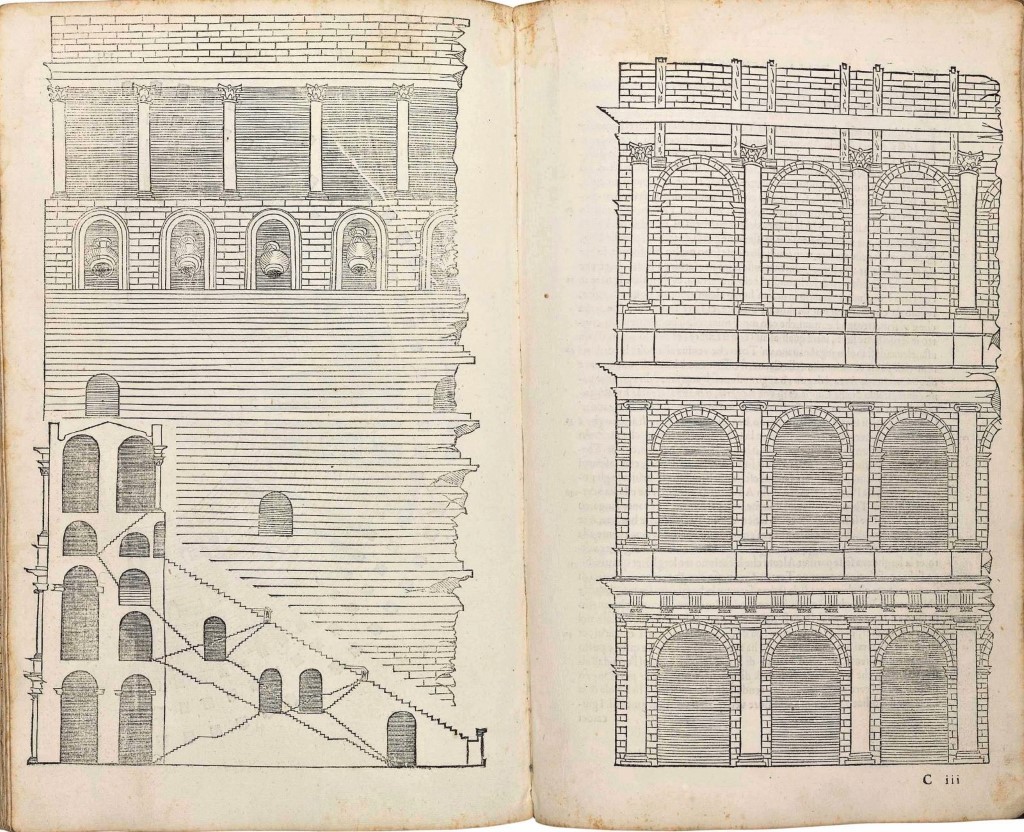 C iii